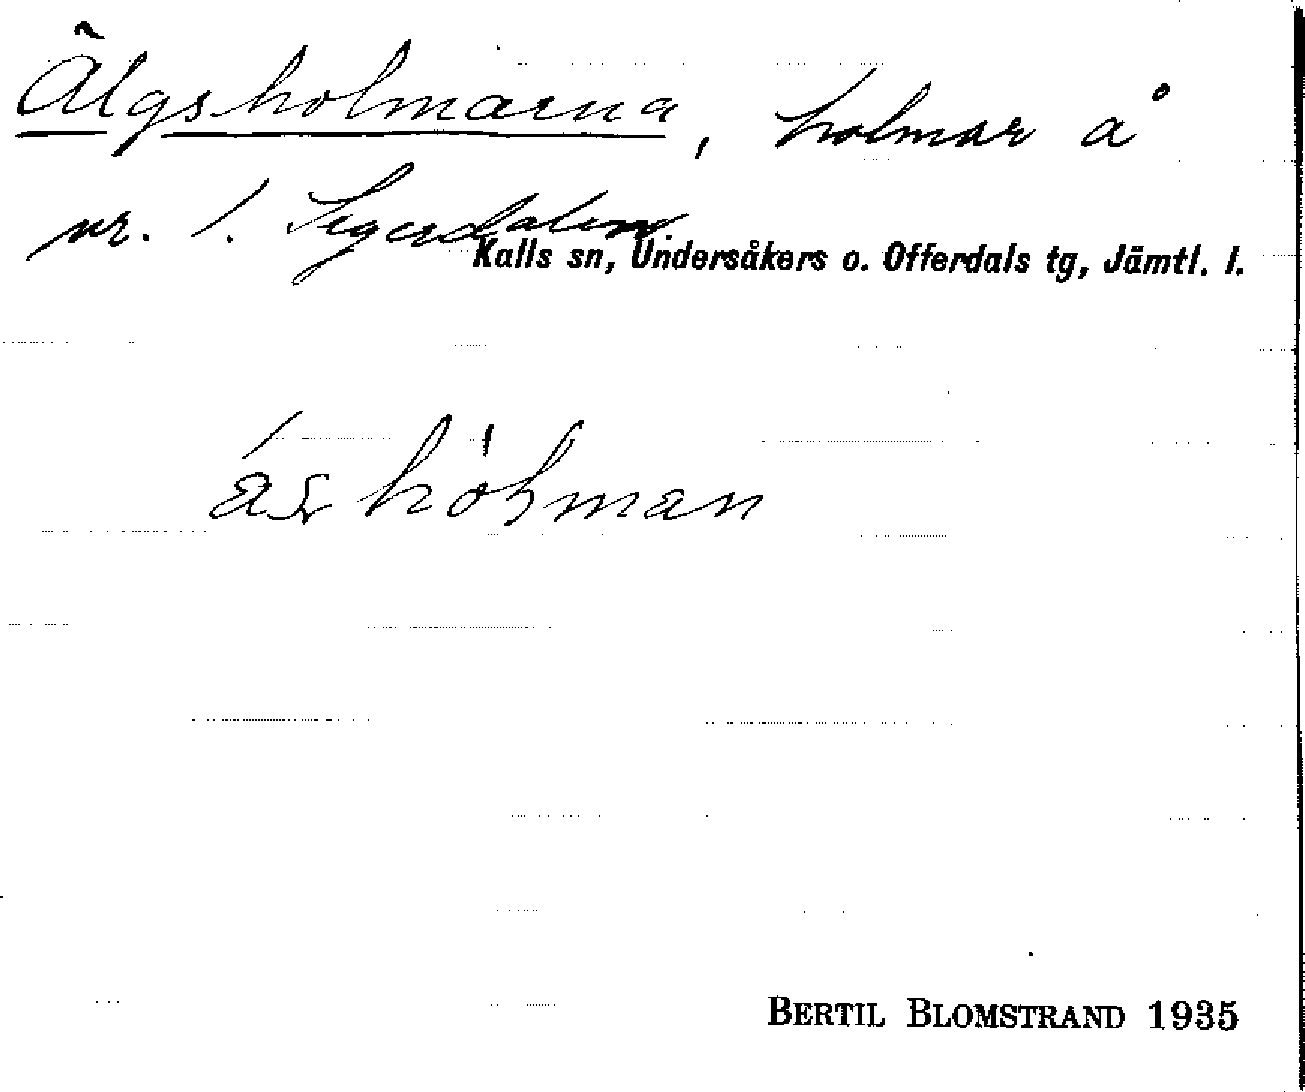 Älgsholmarna, holmar å
nr. 1. Segerdalen.
Kalls sn, Undersåkers o. Offerdals tg, Jämtl. l.
BERTIL BLOMSTRAND 1935